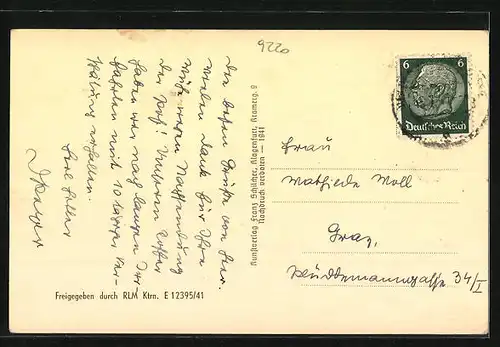 9220
Die besten Grüße von hier.
Vielen Dank für Ihre
Nachsendung
der Post! Unseren Koffer
haben wir nach langen
mit 10 tägiger Ver-
spätung erhalten.
6 6
Deutsches Reich
Frau
Mathilde Moll
Graz,
34/I
Kunstverlag Franz Schilcher, Klagenfurt, Kramerg. 9
Nachdruck verboten — 1941
Freigegeben durch RLM Ktrn. E 12395/41